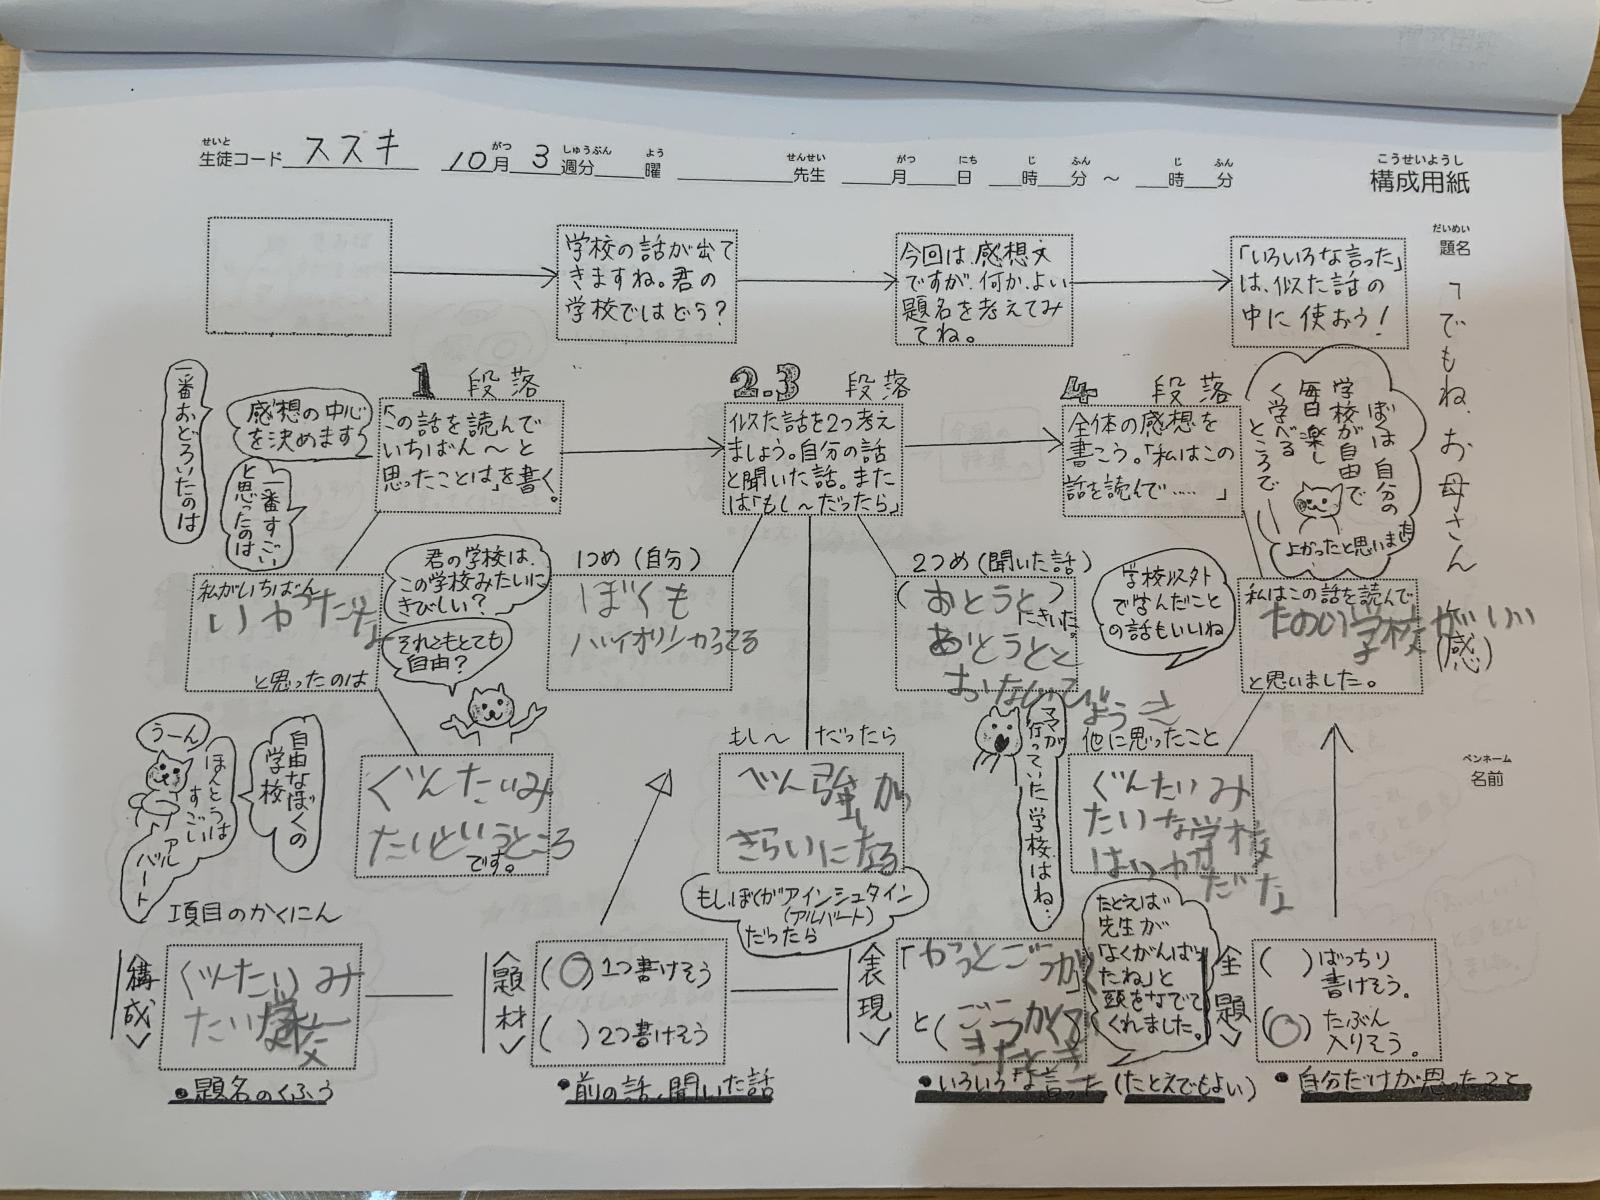 せいと
生徒コード スズキ 10月 3週分 曜 先生 月 日 時 分 〜 時 分
がつ しゅうぶん よう せんせい がつ にち じ ふん じ ふん
こうせいようし
構成用紙
だいめい
題名
「でもね、お母さん
(感)
ペンネーム
名前
学校の話が出て
きますね。君の
学校ではどう？
今回は、感想文
ですが、何か、よい
題名を考えてみ
てね。
「いろいろな言った」
は、似た話の
中に使おう！
1 段落
「この話を読んで
いちばん〜と
思ったことは」を書く。
2.3 段落
似た話を2つ考え
ましょう。自分の話
と聞いた話。また
は「もし〜だったら」
4 段落
全体の感想を
書こう。「私はこの
話を読んで……」
一番おどろいたのは
感想の中心
を決めます
一番すごい
と思ったのは、
ぼくは自分の
学校が自由で
毎日楽し
く学べる
ところで
よかったと思いました
私がいちばん
いやだな
と思ったのは
君の学校は、
この学校みたいに
きびしい？
それともとても
自由？
1つめ（自分）
ぼくも
バイオリンやってる
2つめ（聞いた話）
（おとうと）
にきいた。
おとうとと
おなじ
学校以外
で学んだこと
の話もいいね
私はこの話を読んで
たのしい学校がいい
と思いました。
うーん
ほんとうは
すごい
アル
バート
自由なぼくの
学校
ぐんたいみ
たいというところ
です。
もし〜だったら
べん強が
きらいになる
もし、ぼくがアインシュタイン
（アルバート）
だったら
ママが
行っていた学校はね…
他に思ったこと
ぐんたいみ
たいな学校
はいやだな
項目のかくにん
構成
ぐんたいみ
たいな学校
・題名のくふう
題材
(○) 1つ書けそう
( ) 2つ書けそう
・前の話、聞いた話
表現
「やっとごうかく」
と(ごうかく
できたとき
たとえば
先生が
「よくがんばっ
たね」と
頭をなでて
くれました。
・いろいろな言った（たとえでもよい）
主題
( ) ばっちり
書けそう。
(○) たぶん
入りそう。
・自分だけが思ったこと